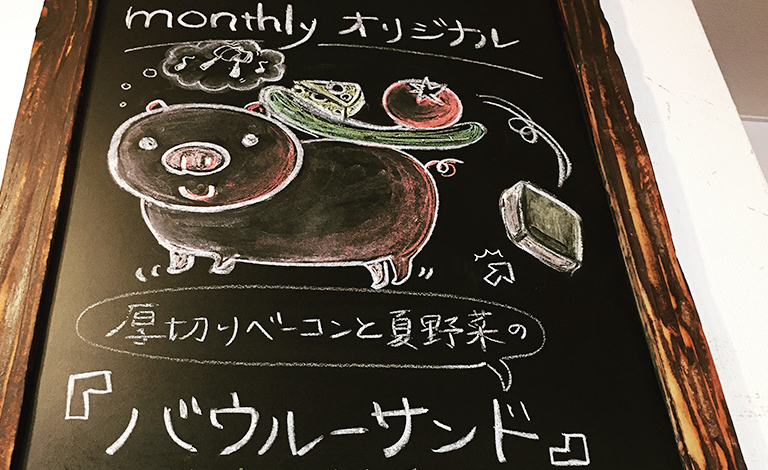 monthly オリジナル
厚切りベーコンと夏野菜の
『バウルーサンド』